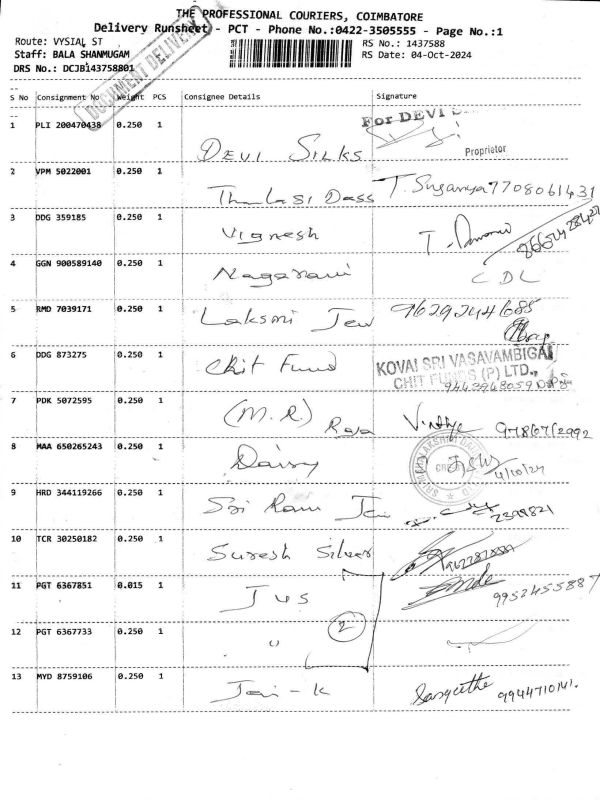 THE PROFESSIONAL COURIERS, COIMBATORE
Delivery Runsheet - PCT - Phone No.:0422-3505555 - Page No.:1
Route: VYSIAL ST RS No.: 1437588
Staff: BALA SHANMUGAM RS Date: 04-Oct-2024
DRS No.: DCJB143758801
DOCUMENT DELIVERY
S No Consignment No Weight PCS Consignee Details Signature
1 PLI 200470438 0.250 1 DEVI SILKS For DEVI
Proprietor
2 VPM 5022001 0.250 1 Thulasi Dass T. Suganya 7708061431
3 DDG 359185 0.250 1 Vignesh
4 GGN 900589140 0.250 1 Nagarani CDL
5 RMD 7039171 0.250 1 Laksmi Jew
6 DDG 873275 0.250 1 Chit Fund KOVAI SRI VASAVAMBIGAI
CHIT FUNDS (P) LTD.,
7 PDK 5072595 0.250 1 (M.R) Raja
8 MAA 650265243 0.250 1 Daisy 4/10/24
9 HRD 344119266 0.250 1 Sri Ram 2399821
10 TCR 30250182 0.250 1 Suresh Silver
11 PGT 6367851 0.015 1 Jus 9952455887
12 PGT 6367733 0.250 1 " 2
13 MYD 8759106 0.250 1 Jai - K Sangeetha 9944710141.